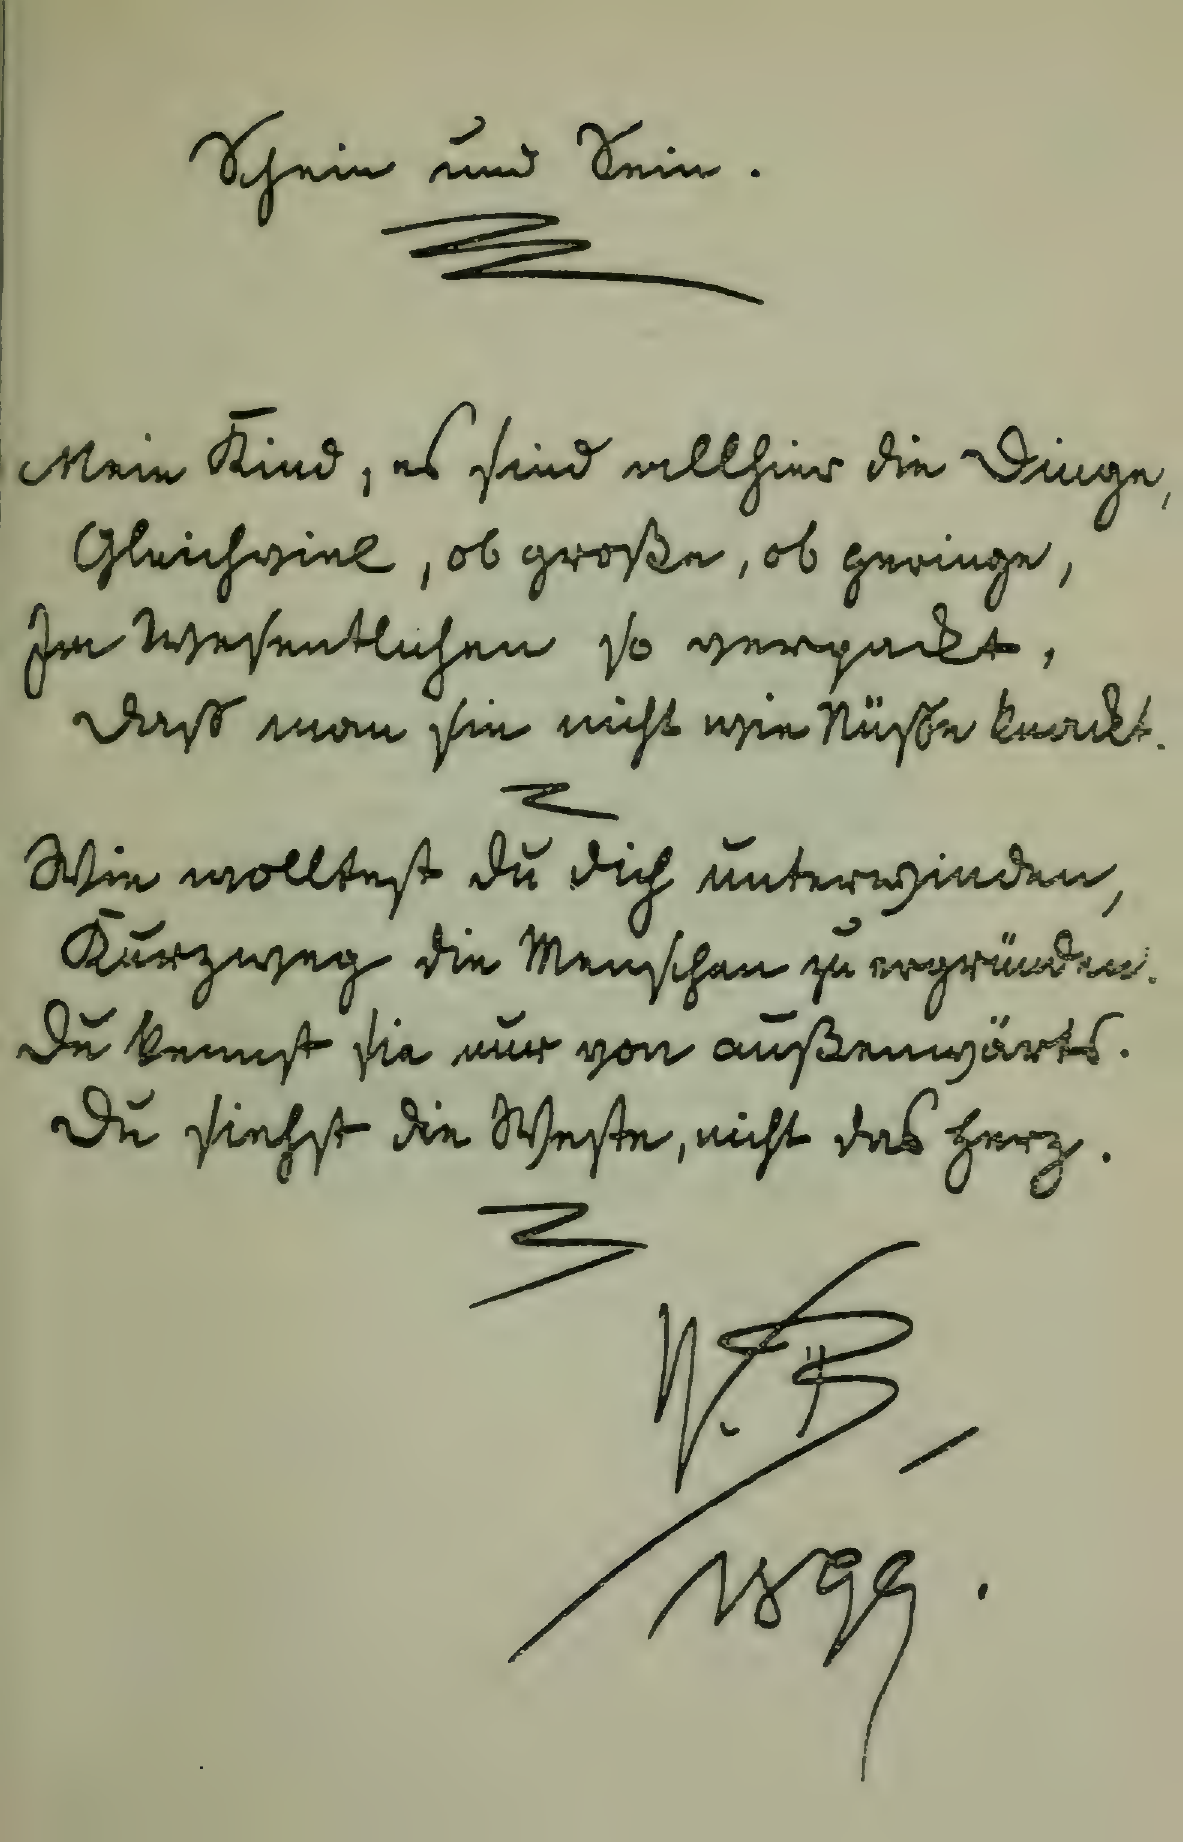 Schein und Sein.
Mein Kind, es sind allhier die Dinge,
Gleichviel, ob große, ob geringe,
Im Wesentlichen so verpackt,
Daß man sie nicht wie Nüße knackt.
Wie wolltest du dich unterwinden,
Kurzweg die Menschen zu ergründen.
Du kennst sie nur von außenwärts.
Du siehst die Weste, nicht das Herz.
W. B.
1899.